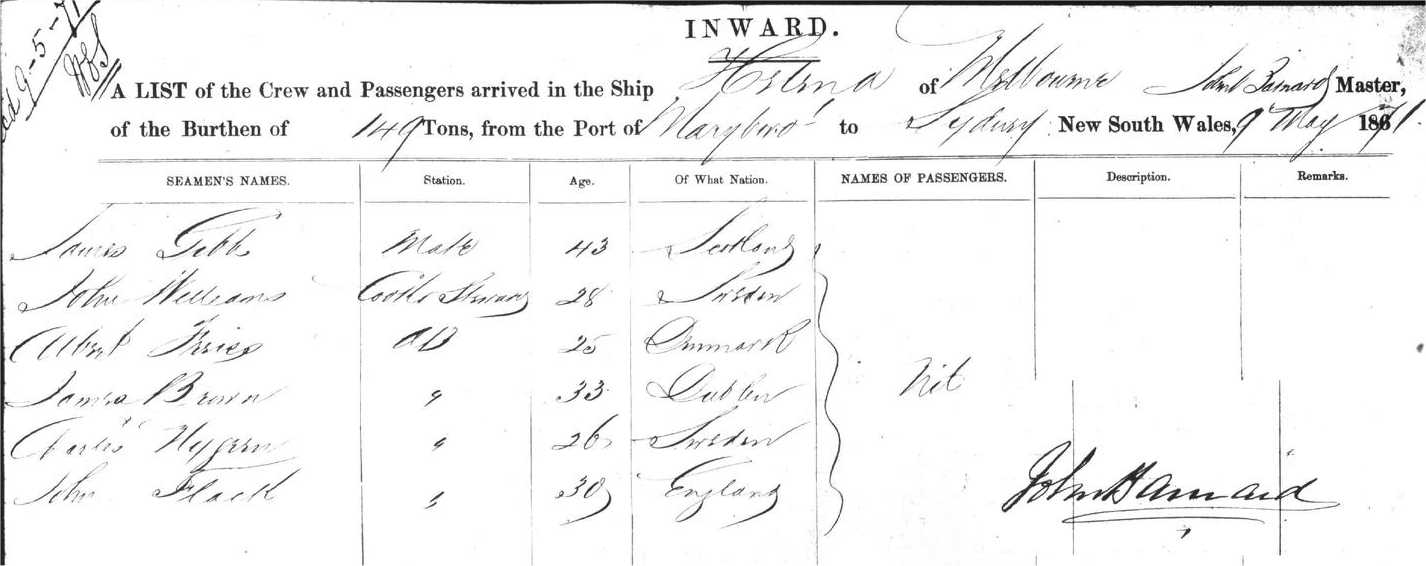 INWARD.
A LIST of the Crew and Passengers arrived in the Ship Helena of Melbourne John Barnard Master,
of the Burthen of 149 Tons, from the Port of Marybro' to Sydney New South Wales, 9 May 1871
SEAMEN'S NAMES. Station. Age. Of What Nation. NAMES OF PASSENGERS. Description. Remarks.
James Gibb Mate 43 Scotland
John Williams Cook & Steward 28 Sweden
Albert 25 Denmark
James Brown " 33 Dublin
Nil
Charles " 26 Sweden
John Flack " 30 England
John Barnard